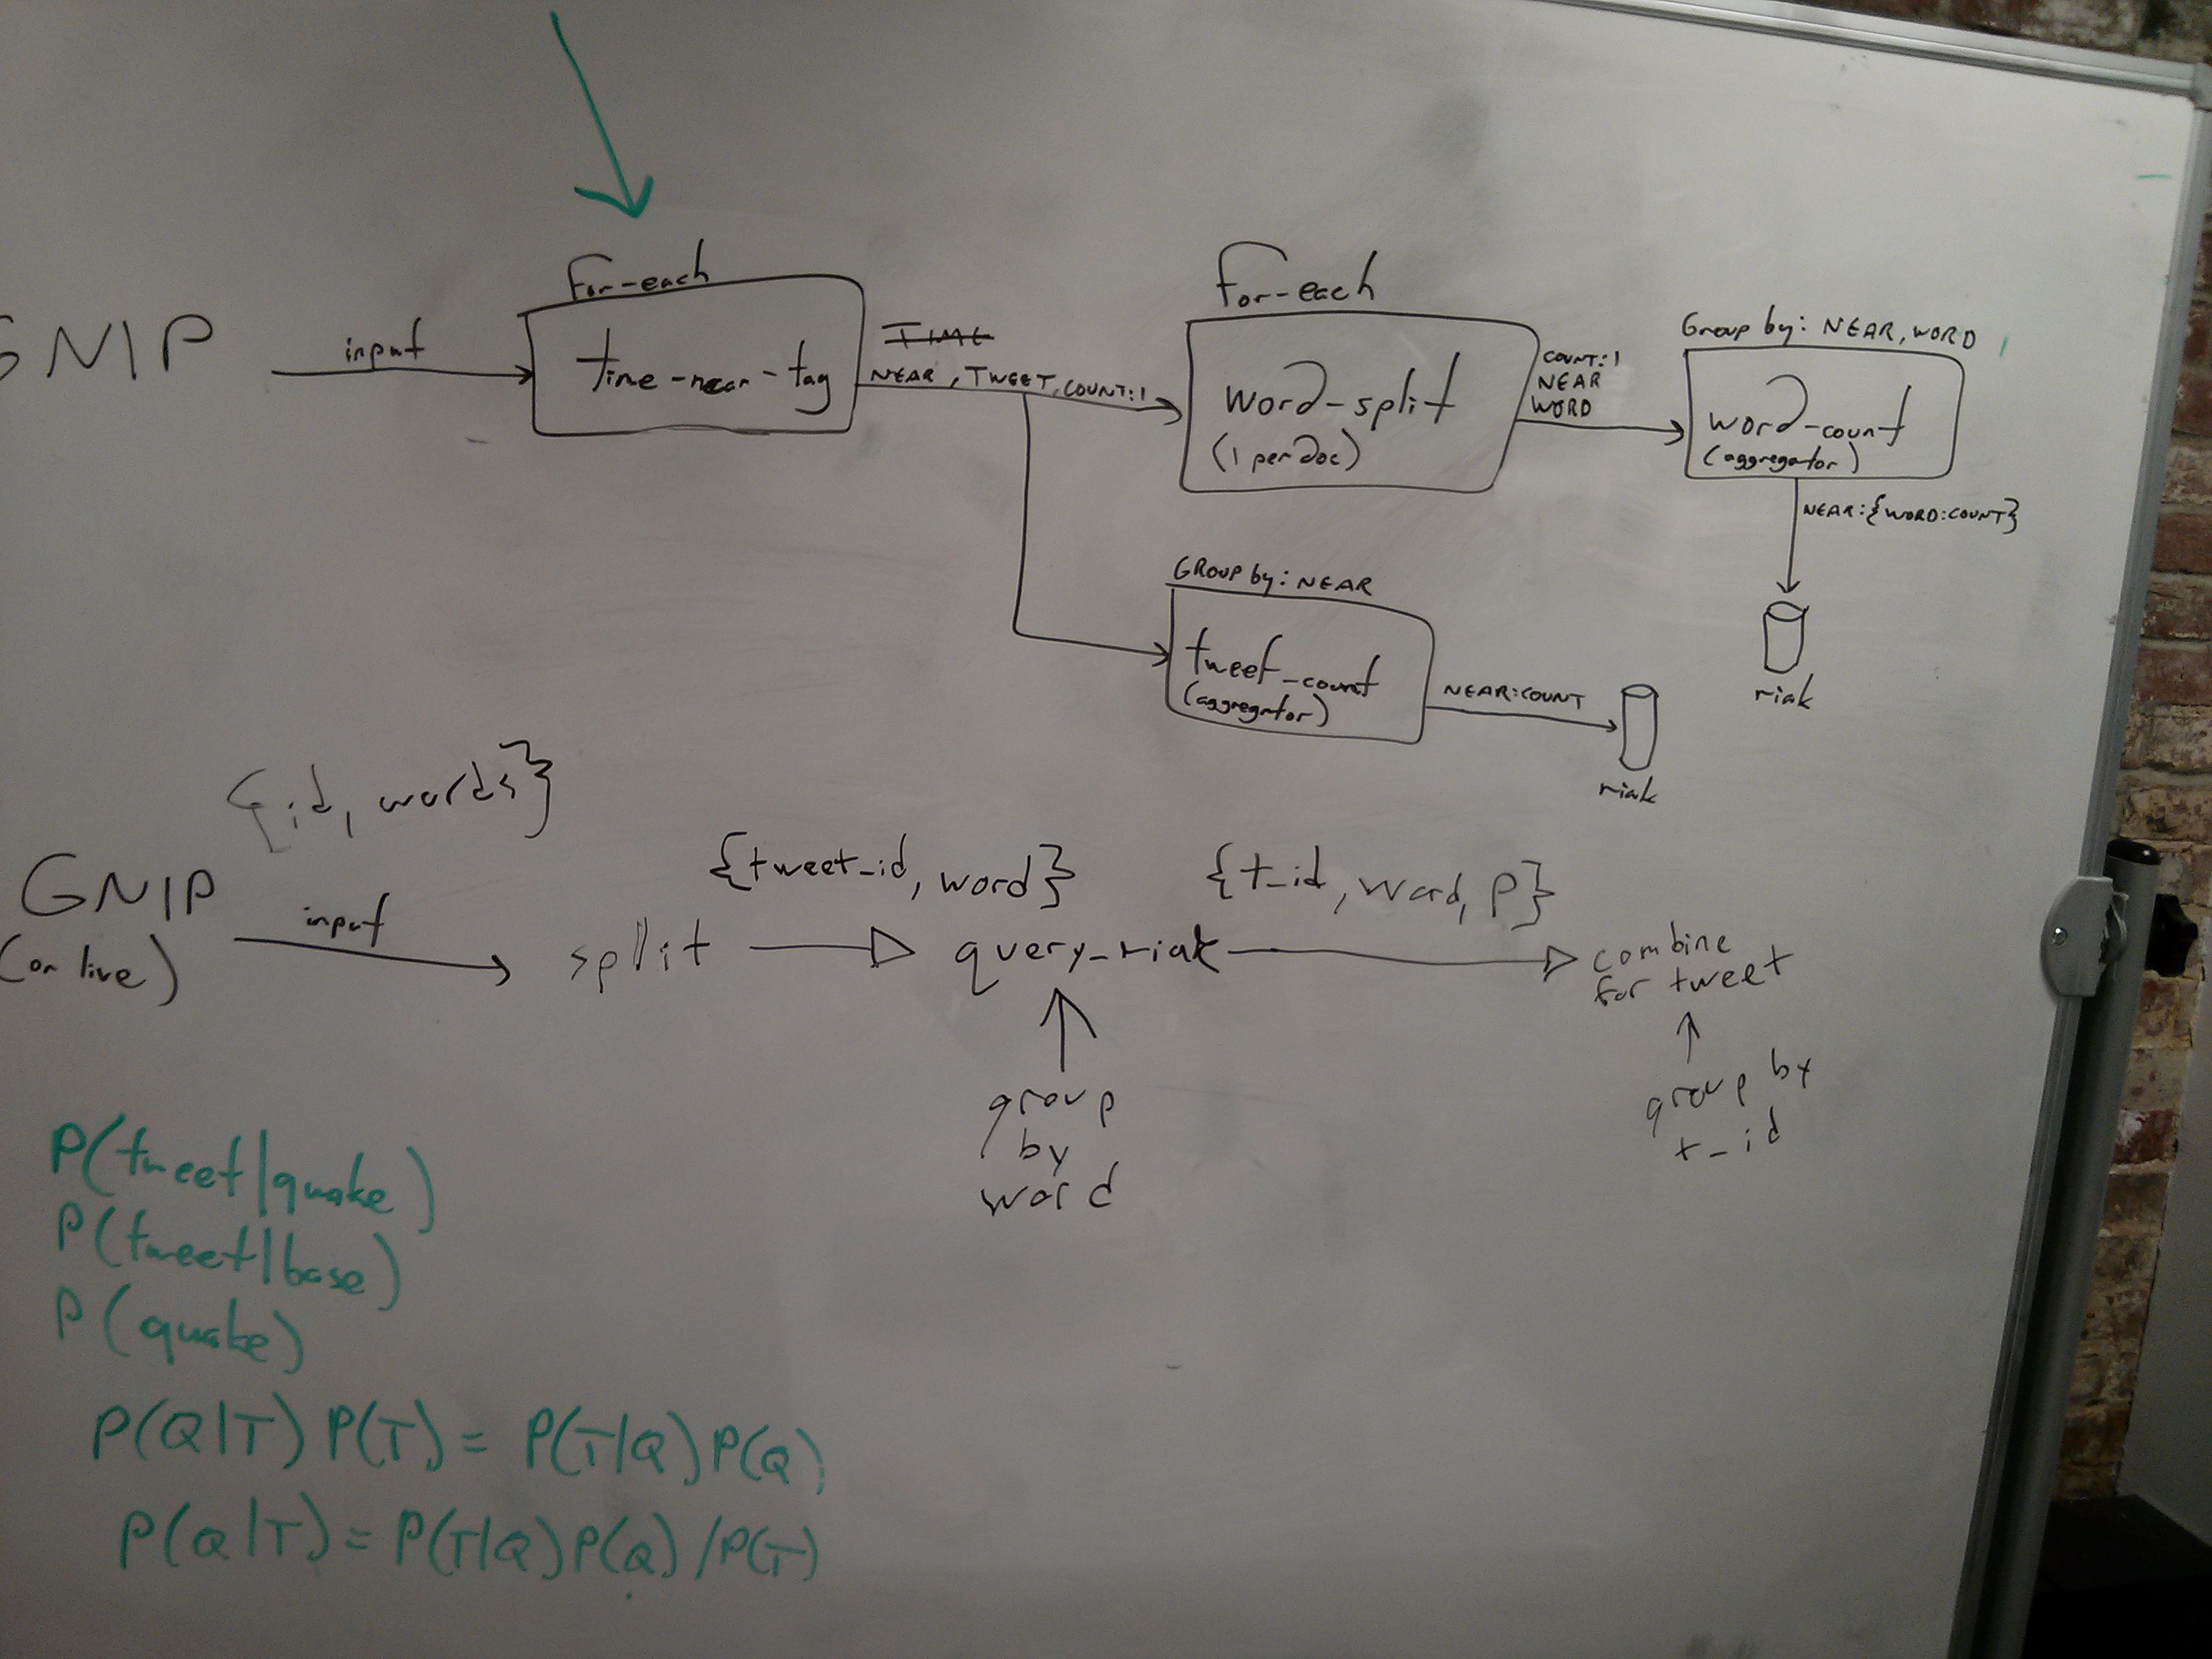 For-each
GNIP
input
time-near-tag
TIME
NEAR, TWEET, COUNT:1
For-each
word-split
(1 per doc)
COUNT:1
NEAR
WORD
Group by: NEAR, WORD
word-count
(aggregator)
NEAR:{WORD:COUNT}
riak
GROUP by: NEAR
tweet_count
(aggregator)
NEAR:COUNT
riak
{id, words}
GNIP
(or live)
input
split
{tweet_id, word}
query_riak
group
by
word
{t_id, word, P}
combine
for tweet
group by
t_id
P(tweet|quake)
P(tweet|base)
P(quake)
P(Q|T) P(T) = P(T|Q) P(Q)
P(Q|T) = P(T|Q) P(Q) / P(T)